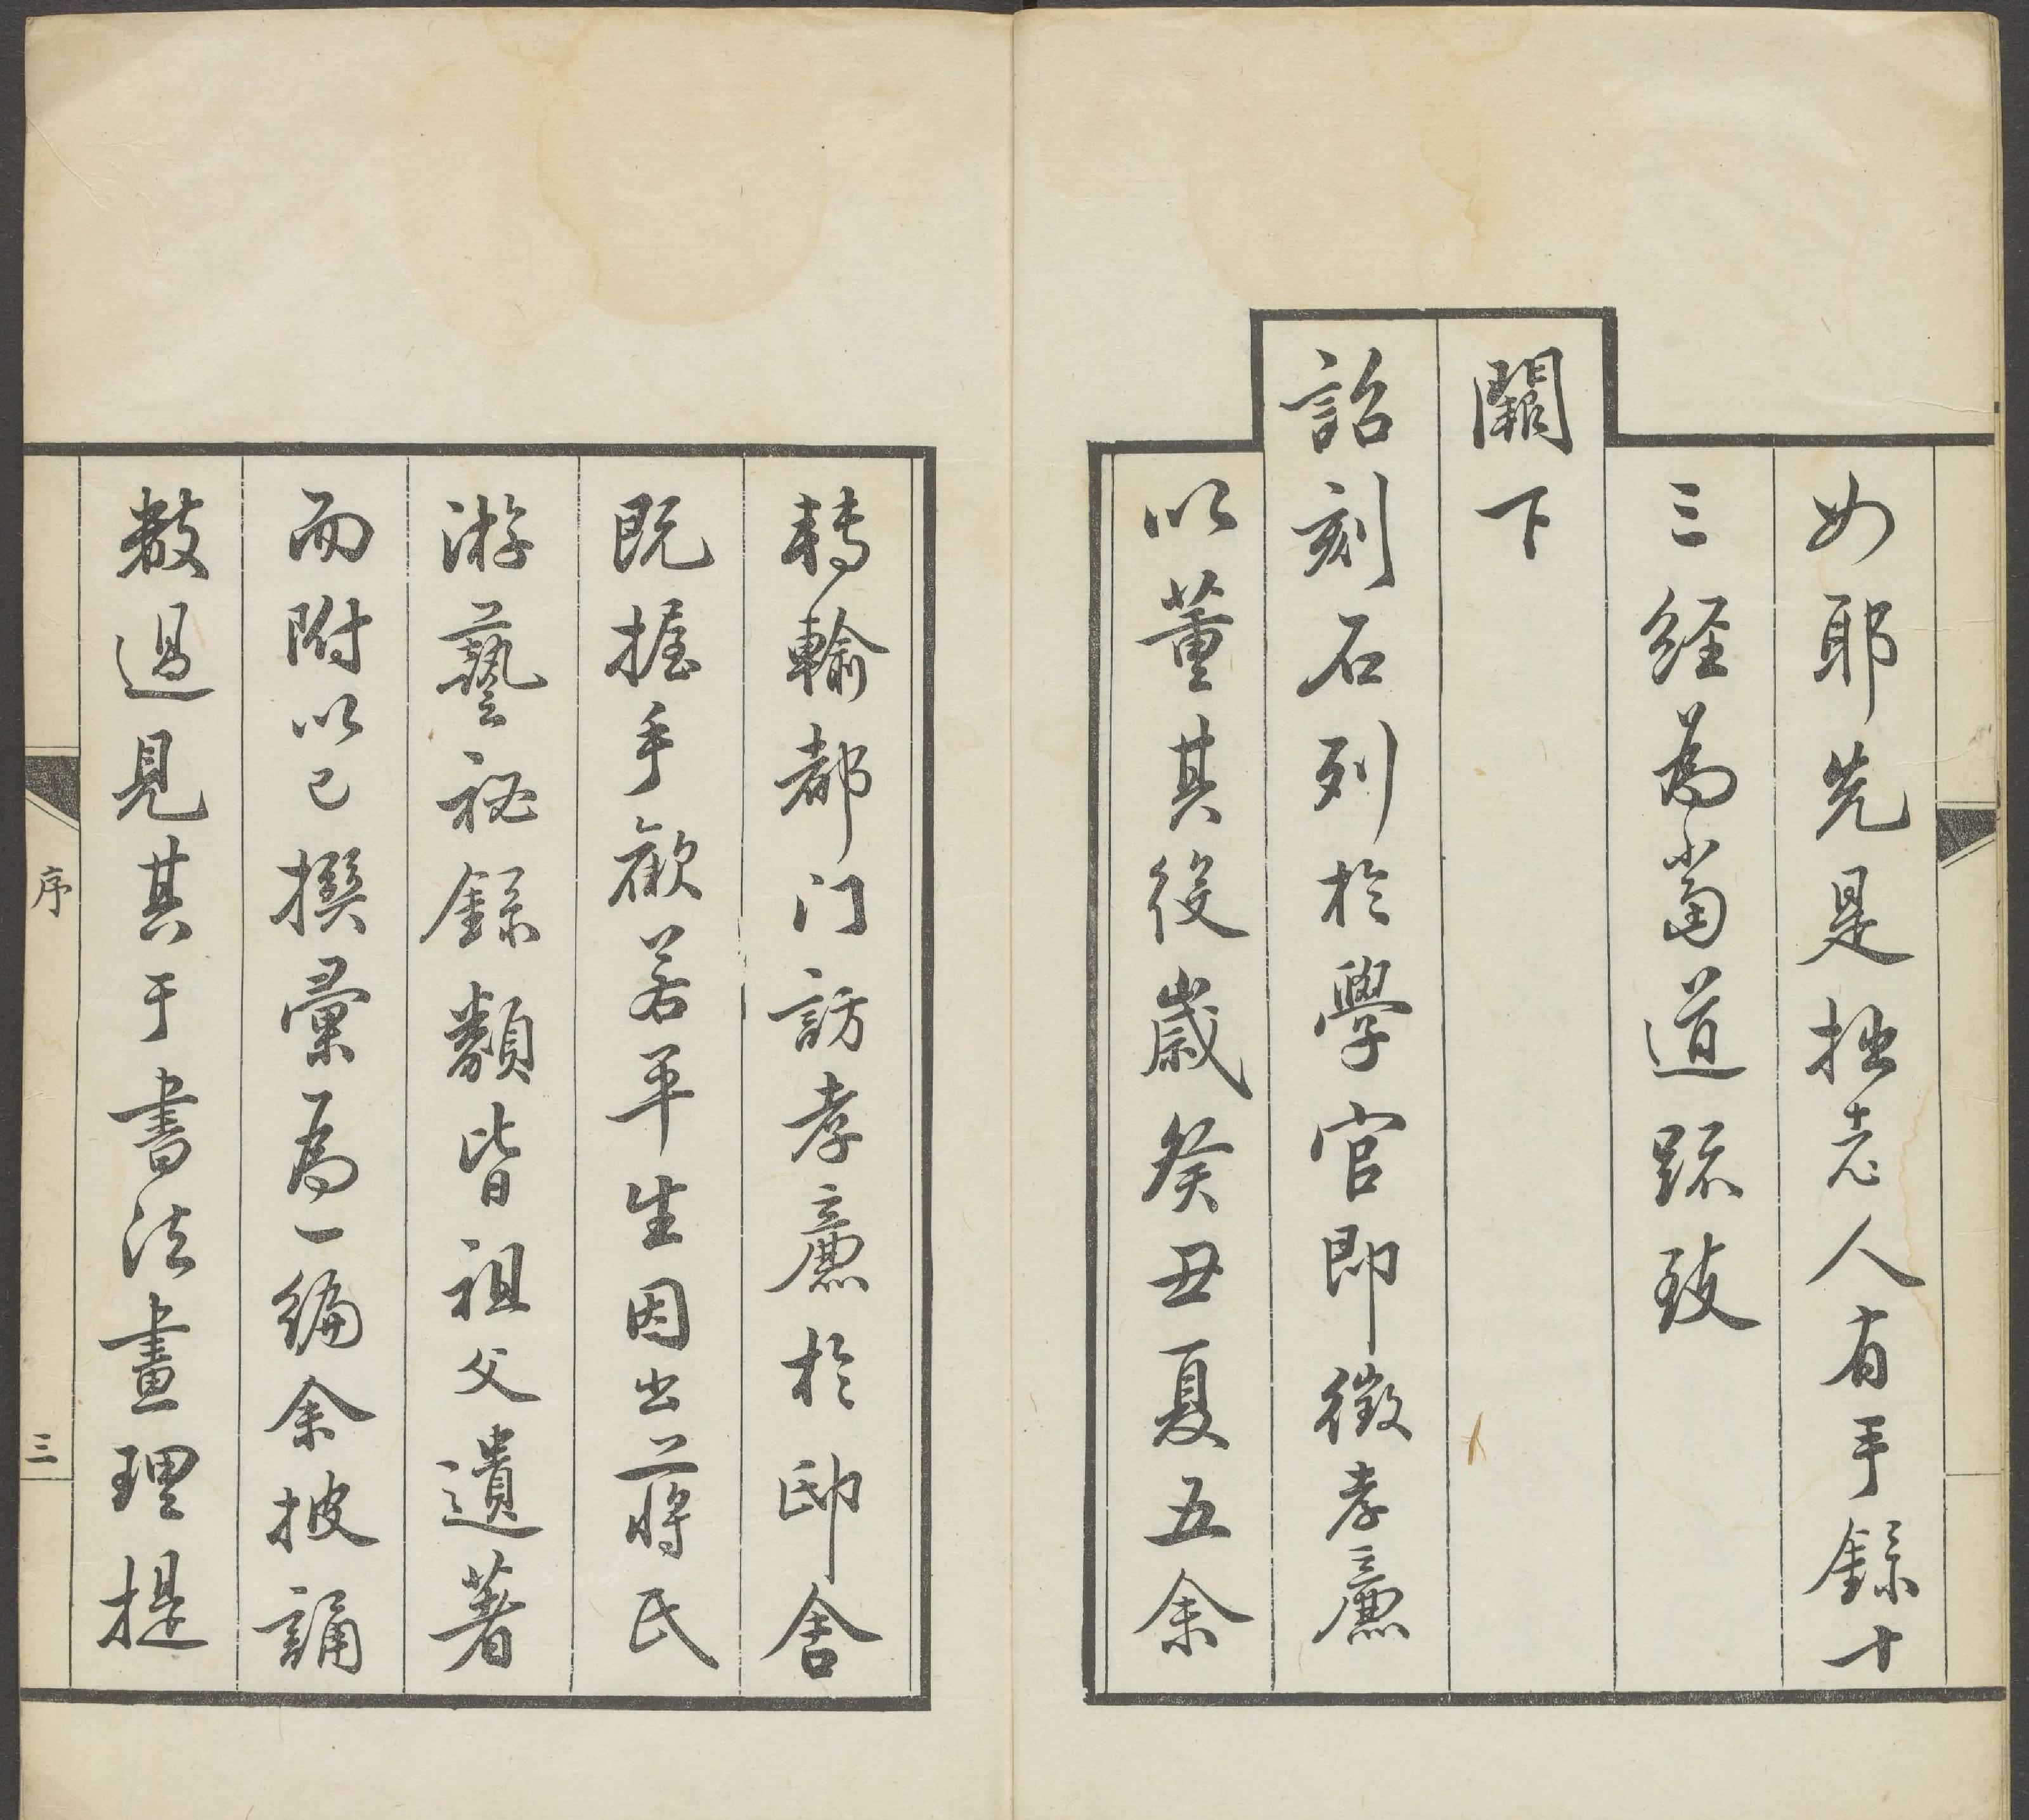 如耶先是拙老人有手錄十
三經為當道疏致
闕下
詔刻石列於學官即徵孝廉
以董其役歲癸丑夏五余
轉輸都门訪孝廉於邸舍
既握手歡若平生因出蔣氏
游藝祕錄類皆祖父遺著
而附以己撰彙為一編余披誦
數過見其于書法畫理提
序
三